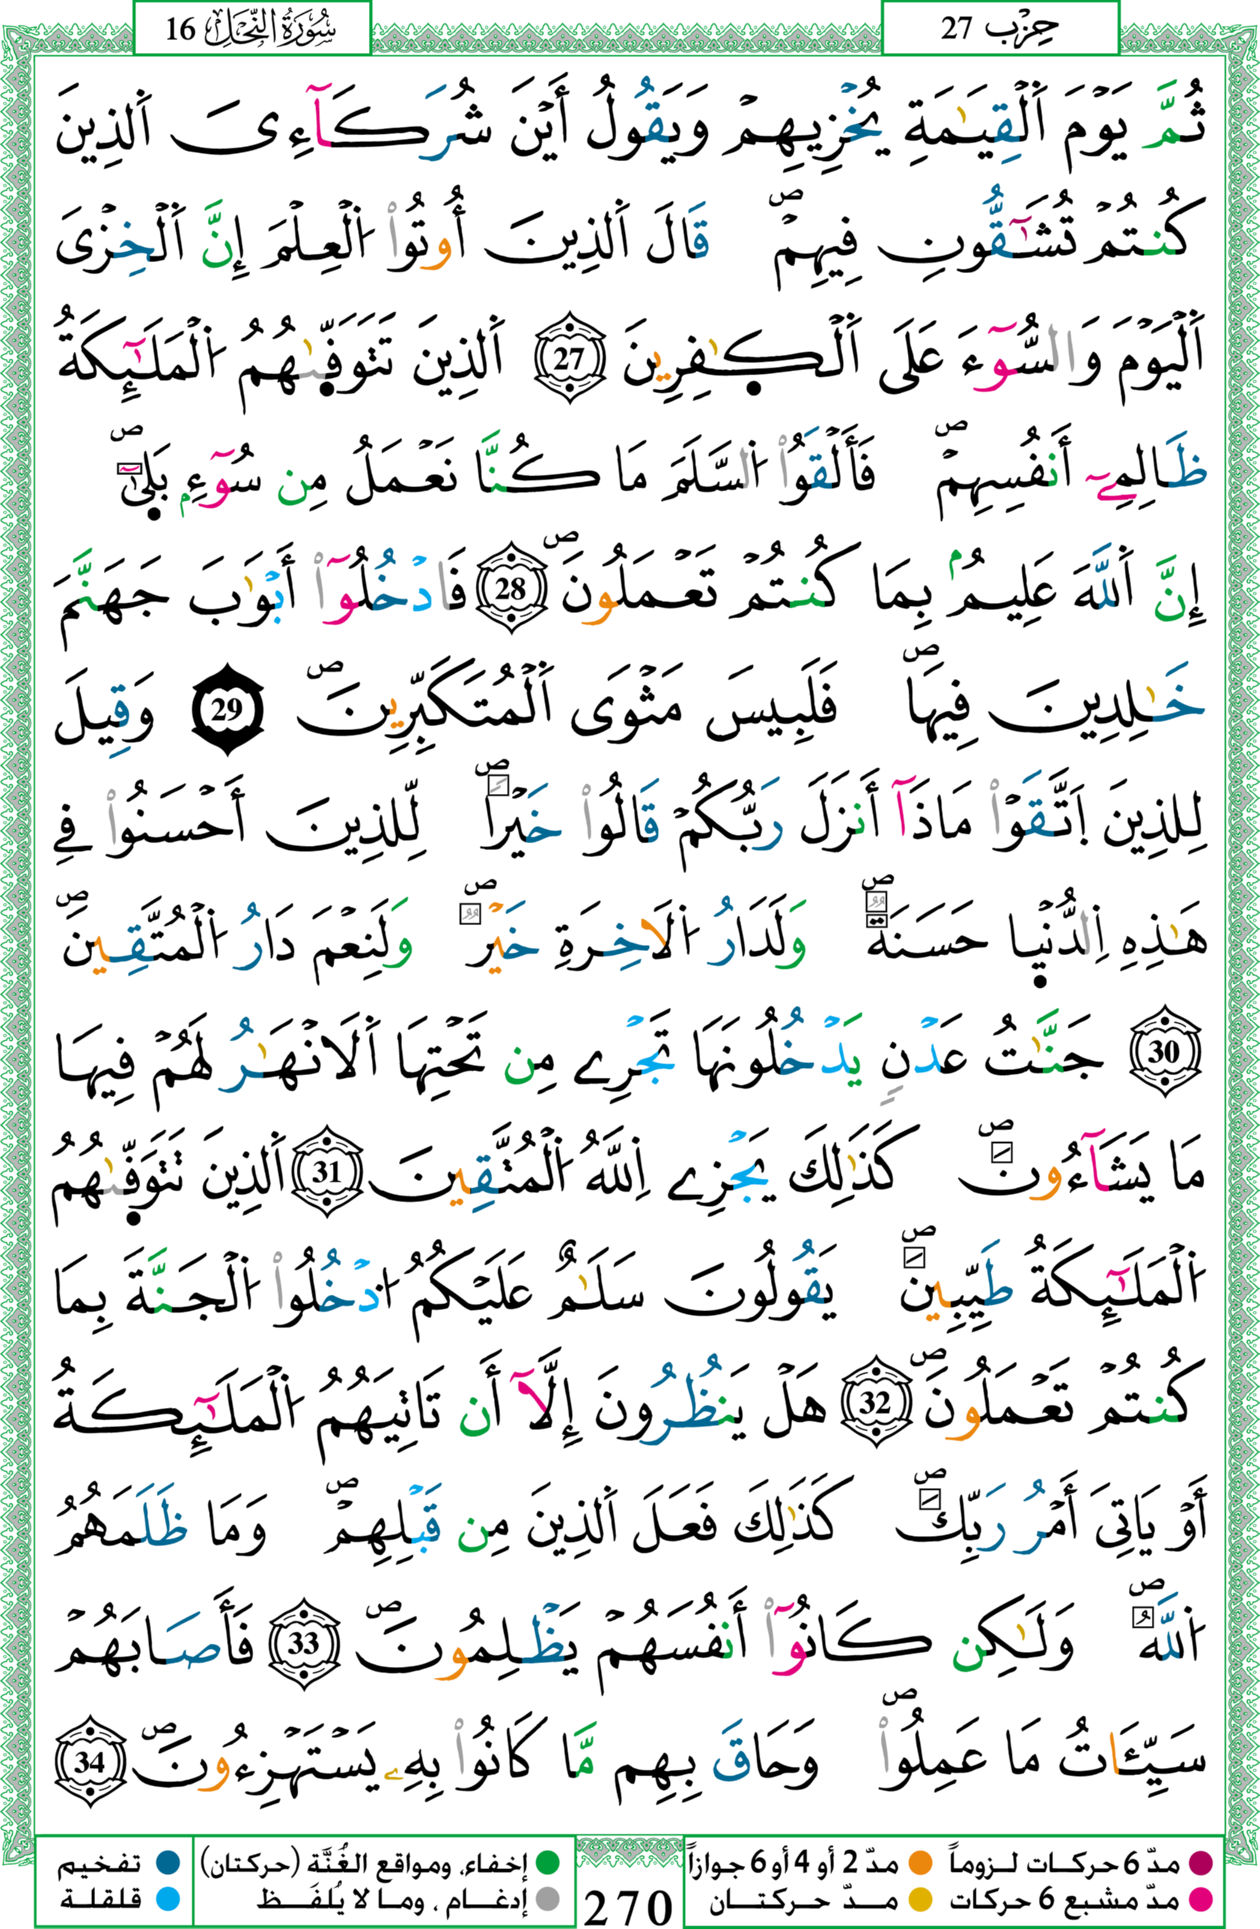 حِزْب 27
سُورَةُ النَّحْلِ 16
ثُمَّ يَوْمَ اَ۬لْقِيَٰمَةِ يُخْزِيهِمْ وَيَقُولُ أَيْنَ شُرَكَآءِىَ اَ۬لذِينَ
كُنتُمْ تُشَٰٓقُّونِ فِيهِمْۖ قَالَ اَ۬لذِينَ أُوتُوا۟ اُ۬لْعِلْمَ إِنَّ اَ۬لْخِزْىَ
اَ۬لْيَوْمَ وَالسُّوٓءَ عَلَى اَ۬لْكٰ۪فِرِينَ 27 اَ۬لذِينَ تَتَوَفّ۪يٰهُمُ اُ۬لْمَلَٰٓئِكَةُ
ظَالِمِےٓ أَنفُسِهِمْۖ فَأَلْقَوُا۟ اُ۬لسَّلَمَ مَا كُنَّا نَعْمَلُ مِن سُوٓءِۢ بَل۪ىٰٓۖ
إِنَّ اَ۬للَّهَ عَلِيمُۢ بِمَا كُنتُمْ تَعْمَلُونَۖ 28 فَادْخُلُوٓا۟ أَبْوَٰبَ جَهَنَّمَ
خَٰلِدِينَ فِيهَاۖ فَلَبِيسَ مَثْوَى اَ۬لْمُتَكَبِّرِينَۖ 29 وَقِيلَ
لِلذِينَ اَ۪تَّقَوْا۟ مَاذَآ أَنزَلَ رَبُّكُمْ قَالُوا۟ خَيْراٗۖ لِّلذِينَ أَحْسَنُوا۟ فِے
هَٰذِهِ اِ۬لدُّنْي۪ا حَسَنَةٞۖ وَلَدَارُ اُ۬لَاخِرَةِ خَيْرٞۖ وَلَنِعْمَ دَارُ اُ۬لْمُتَّقِينَۖ
30 جَنَّٰتُ عَدْنٖ يَدْخُلُونَهَا تَجْرِے مِن تَحْتِهَا اَ۬لَانْهَٰرُ لَهُمْ فِيهَا
مَا يَشَآءُونَۖ كَذَٰلِكَ يَجْزِے اِ۬للَّهُ اُ۬لْمُتَّقِينَ 31 اَ۬لذِينَ تَتَوَفّ۪يٰهُمُ
اُ۬لْمَلَٰٓئِكَةُ طَيِّبِينَۖ يَقُولُونَ سَلَٰمٌ عَلَيْكُمُ اُ۟دْخُلُوا۟ اُ۬لْجَنَّةَ بِمَا
كُنتُمْ تَعْمَلُونَۖ 32 هَلْ يَنظُرُونَ إِلَّآ أَن تَاتِيَهُمُ اُ۬لْمَلَٰٓئِكَةُ
أَوْ يَاتِىَ أَمْرُ رَبِّكَۖ كَذَٰلِكَ فَعَلَ اَ۬لذِينَ مِن قَبْلِهِمْۖ وَمَا ظَلَمَهُمُ
اُ۬للَّهُۖ وَلَٰكِن كَانُوٓا۟ أَنفُسَهُمْ يَظْلِمُونَۖ 33 فَأَصَابَهُمْ
سَيِّـَٔاتُ مَا عَمِلُوا۟ۖ وَحَاقَ بِهِم مَّا كَانُوا۟ بِهِۦ يَسْتَهْزِءُونَۖ 34
مدّ 6 حركات لـزوماً مدّ 2 أو 4 أو 6 جوازاً إخفاء، ومواقع الغُنَّة (حركتان) تفخيم
مدّ مشبع 6 حركات مـدّ حركتـان إدغـام ، ومـا لا يُلفَـظ قلقلة
270